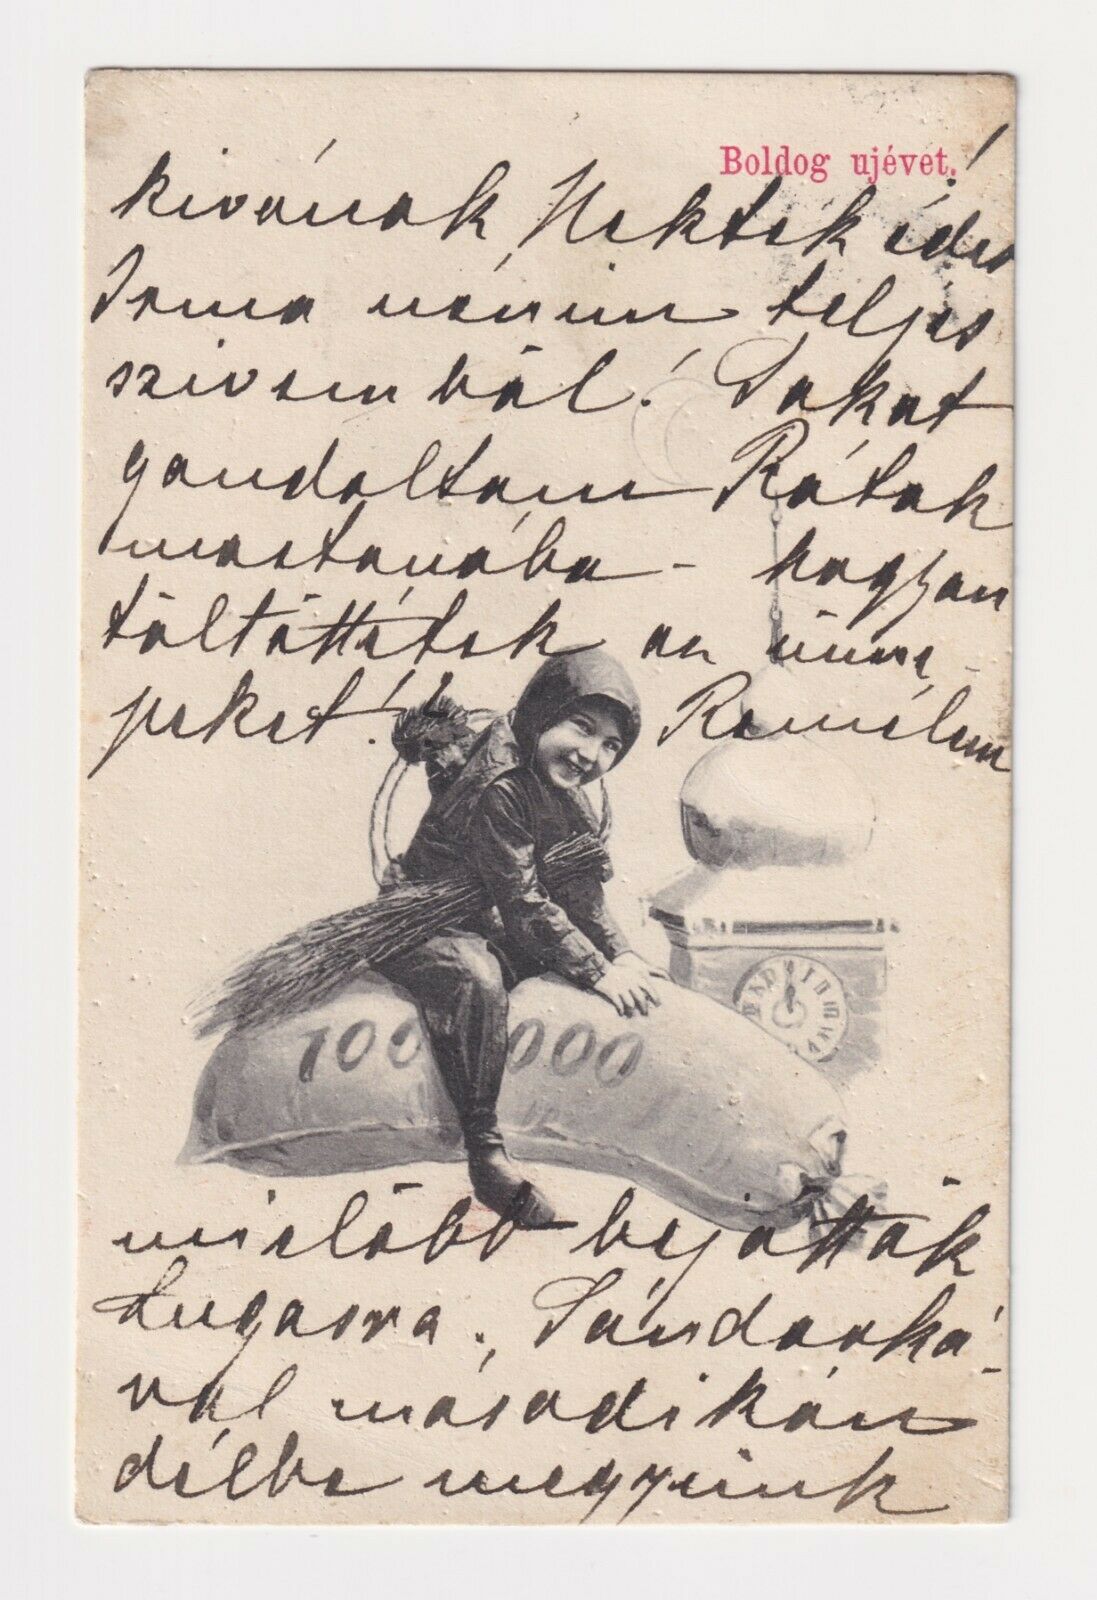 Boldog ujévet.!
kivánok Nektek édes
Irma nénim teljes
szivemből! Sokat
gondoltam Rátok
mostanába - hogyan
töltöttétek az ünne-
peket!? Remélem
100 000
mielőbb bejöttök
Lugosra. Sándorká-
val másodikán
délbe megyünk